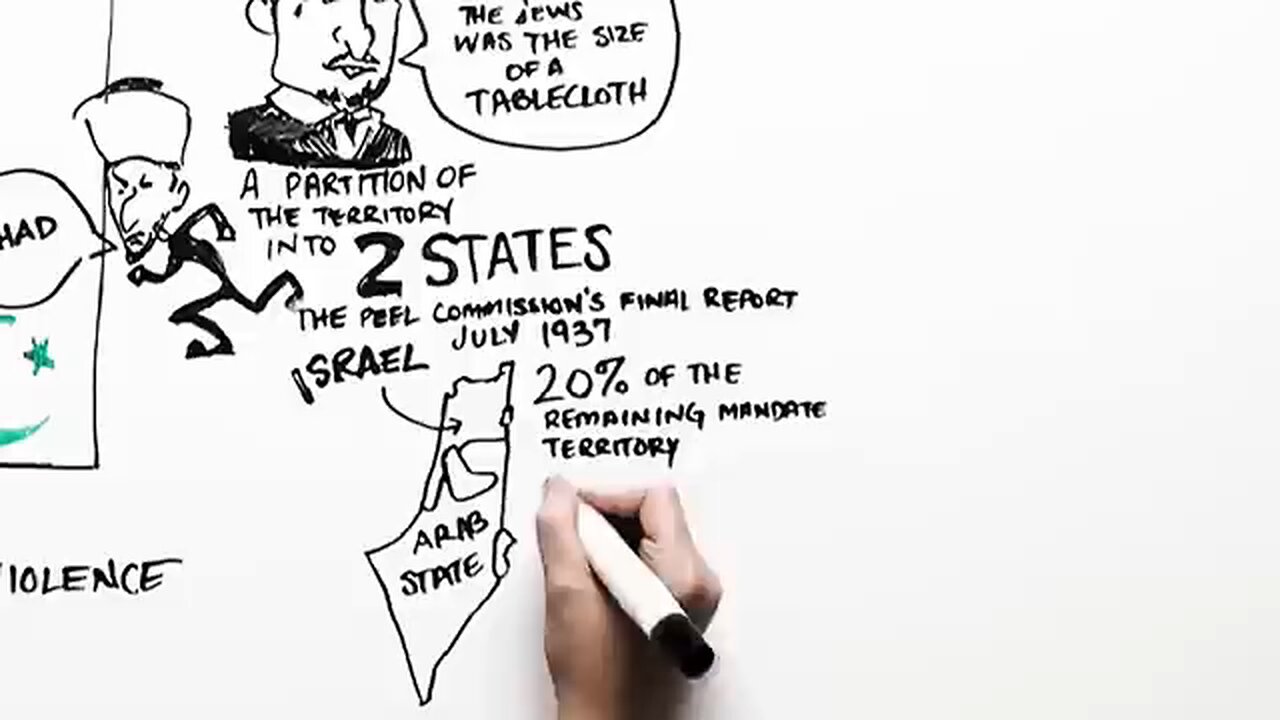 THE JEWS
WAS THE SIZE
OF A
TABLECLOTH
A PARTITION OF
THE TERRITORY
INTO 2 STATES
THE PEEL COMMISSION'S FINAL REPORT
JULY 1937
ISRAEL
20% OF THE
REMAINING MANDATE
TERRITORY
ARAB
STATE
HAD
IOLENCE